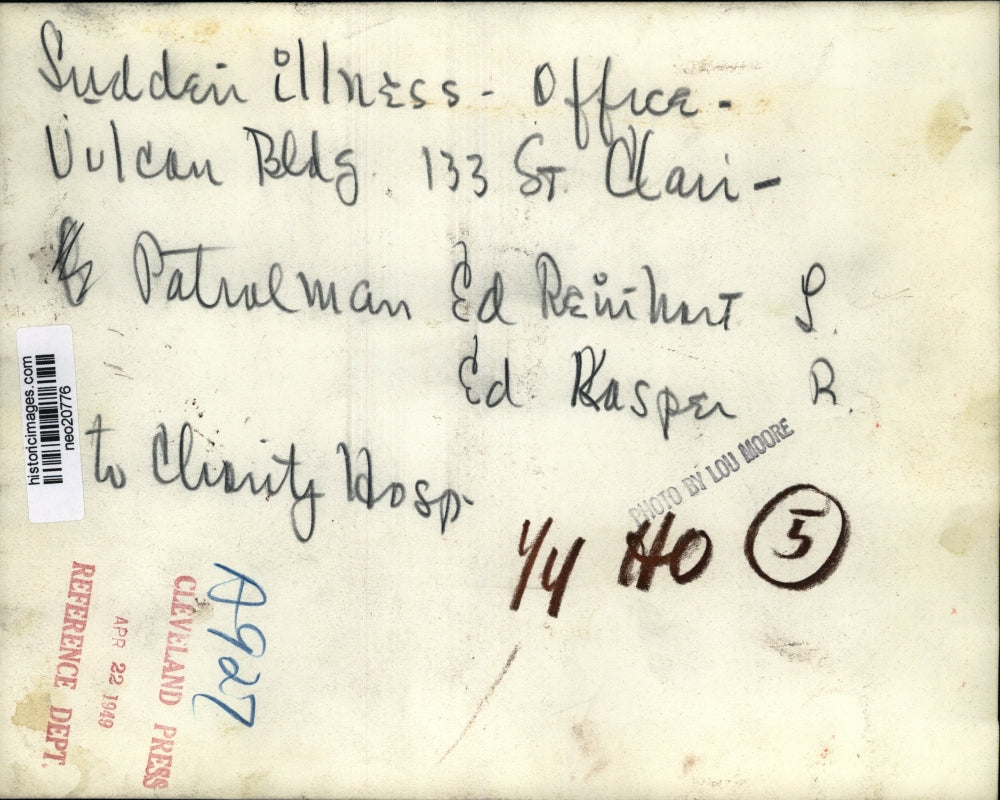 Sudden illness - Office -
Vulcan Bldg. 133 St. Clair -
Patrolman Ed Reinhart L.
Ed Kasper R.
to Charity Hosp.
historicimages.com
neo20776
PHOTO BY LOU MOORE
1/4 HO 5
A927
CLEVELAND PRESS
APR 22 1949
REFERENCE DEPT.